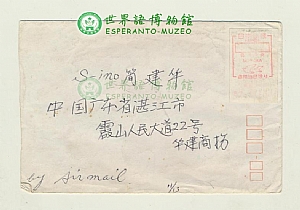 世界语博物馆
ESPERANTO-MUZEO
S-ino 简建华
中国广东省湛江市
霞山人民大道22号
华建商杨
by Airmail